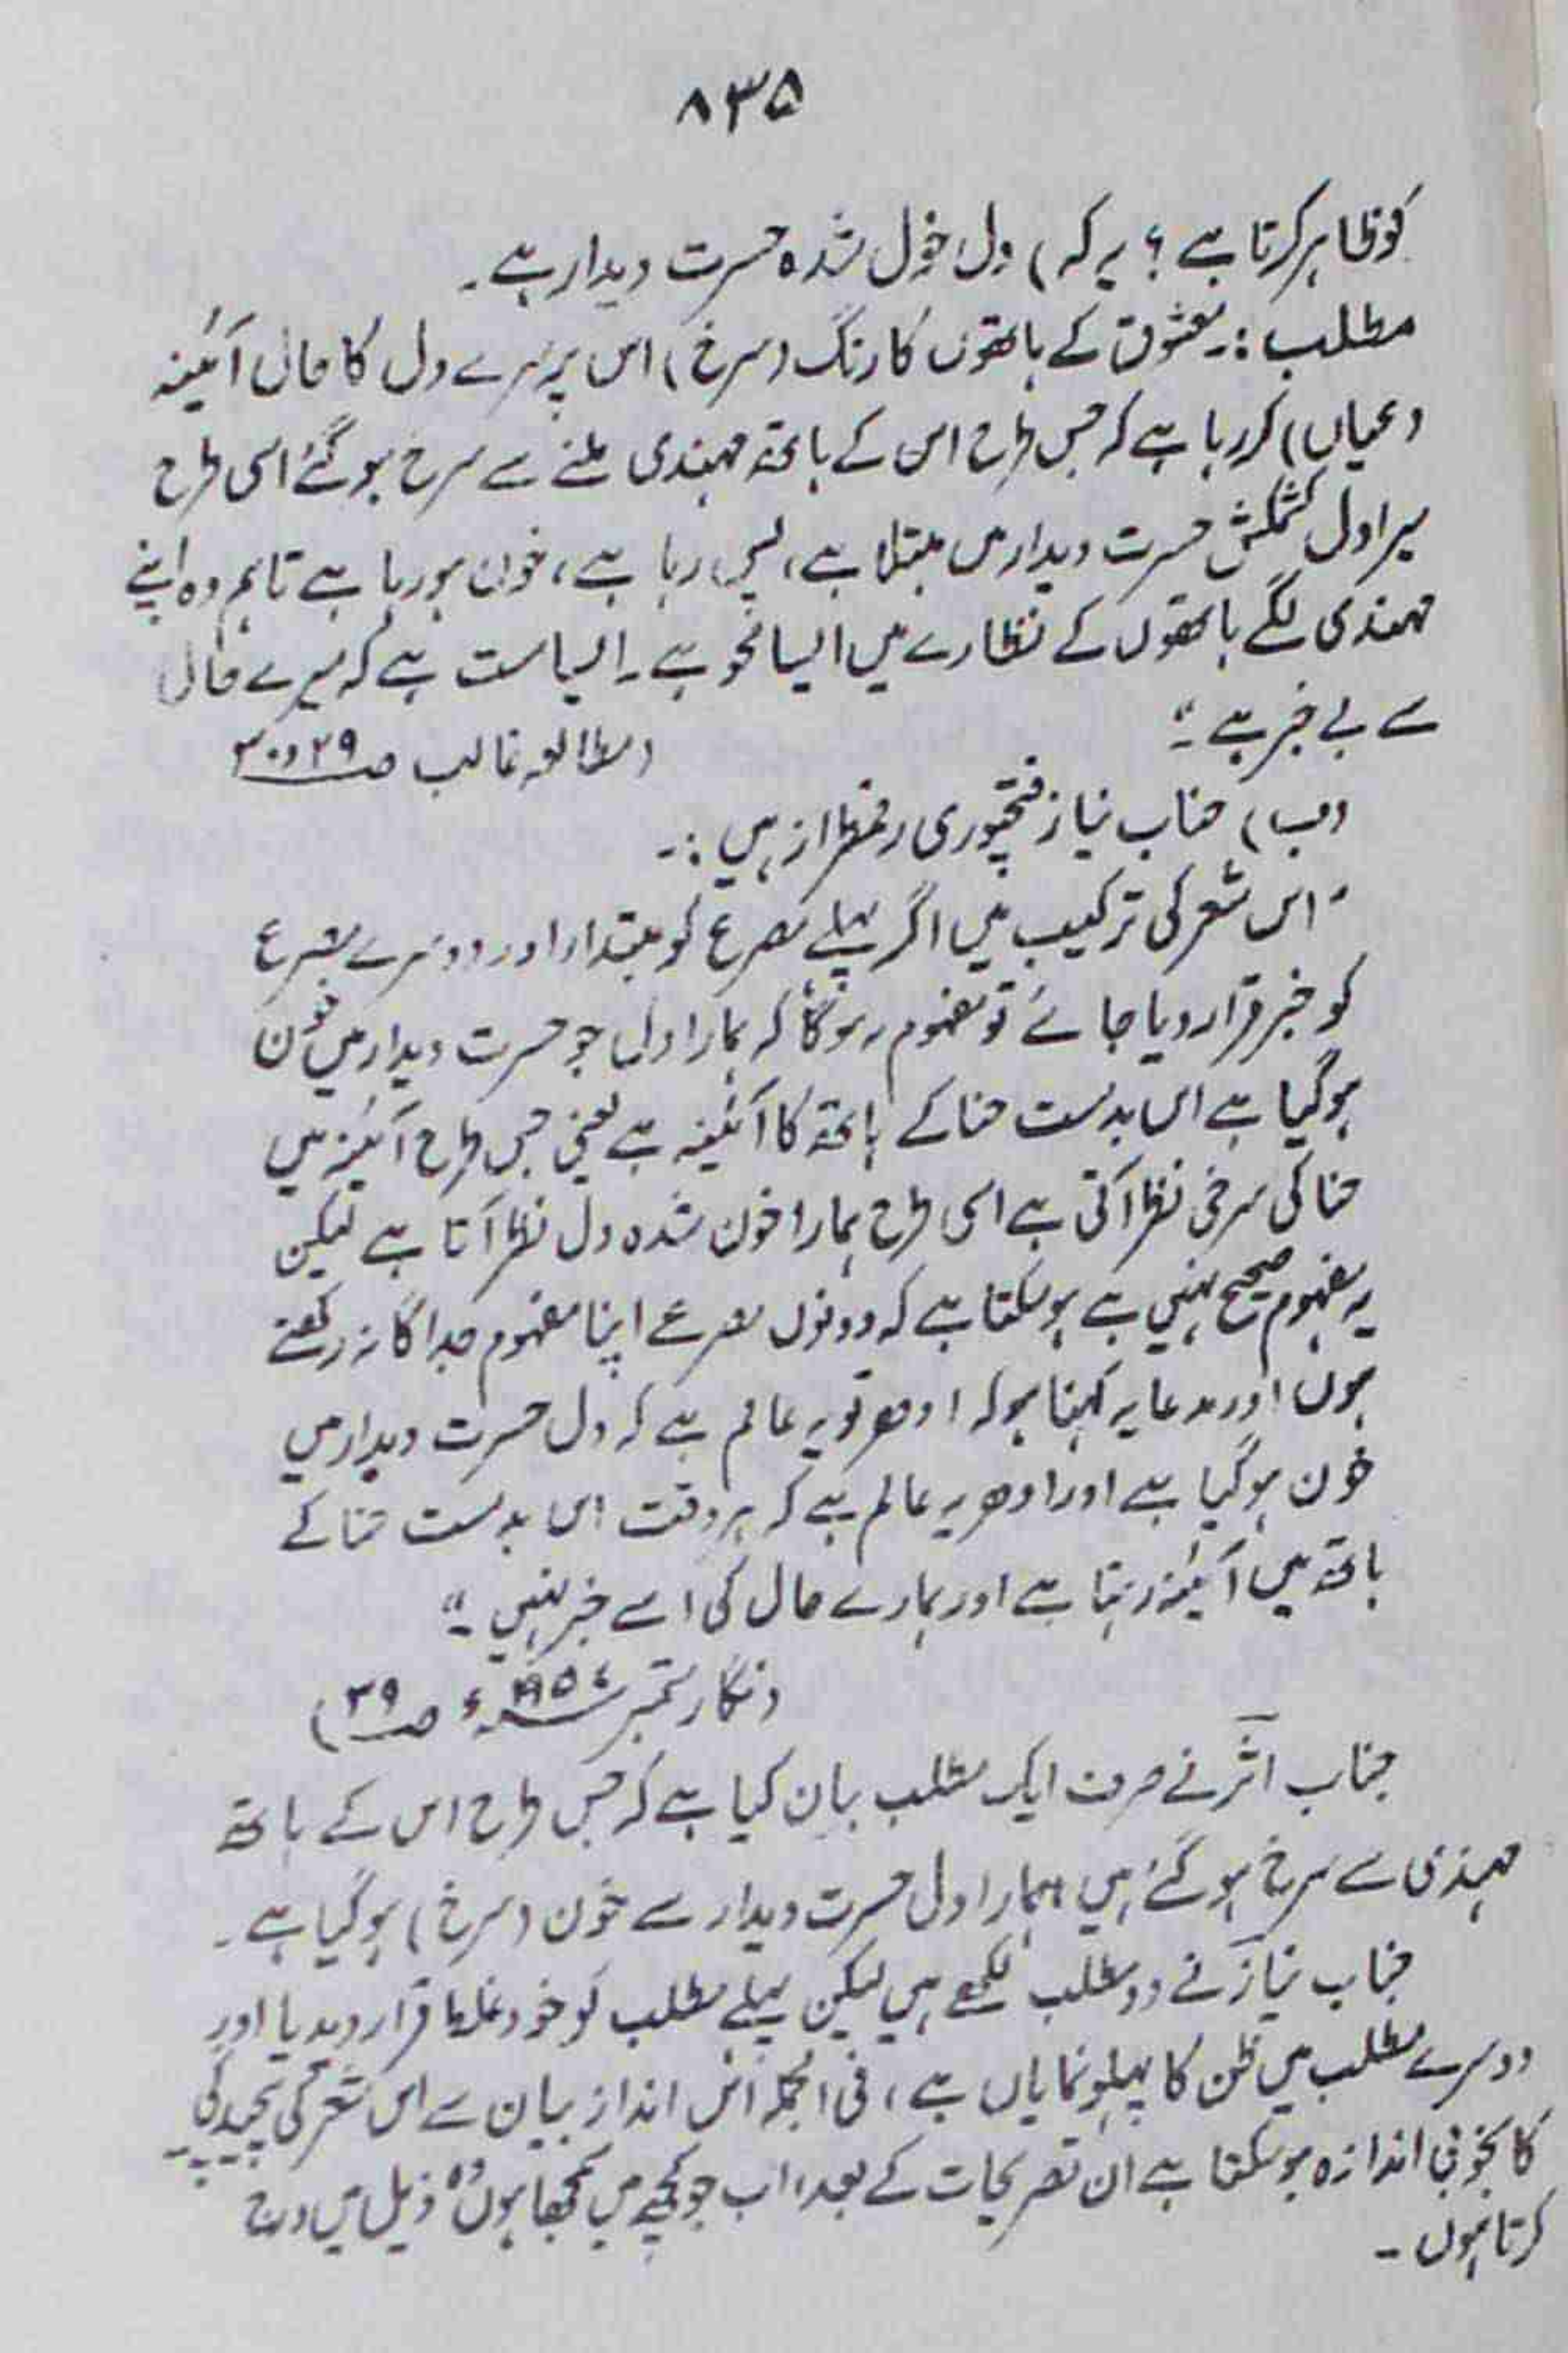 ۸۳۵
کو ظاہر کرتا ہے؟ یہ کہ) دل خوں شدہ حسرت دیدار ہے۔
مطلب :۔ معشوق کے ہاتھوں کا رنگ (سرخ) اس پر میرے دل کا حال آئینہ
(عیاں) کر رہا ہے کہ جس طرح اس کے ہاتھ مہندی ملنے سے سرخ ہو گئے اسی طرح
میرا دل کشمکش حسرت دیدار میں مبتلا ہے، پس رہا ہے، خون ہو رہا ہے تاہم وہ اپنے
مہندی لگے ہاتھوں کے نظارے میں ایسا محو ہے۔ ایسا مست ہے کہ میرے حال
سے بے خبر ہے ۔"
(مطالعہ غالب ص ۲۹ و ۳۰
(ب) جناب نیاز فتحپوری رقمطراز ہیں :۔
"اس شعر کی ترکیب میں اگر پہلے مصرع کو مبتدا اور دوسرے مصرع
کو خبر قرار دیا جائے تو مفہوم یہ ہوگا کہ ہمارا دل جو حسرت دیدار میں خون
ہو گیا ہے اس بدمست حنا کے ہاتھ کا آئینہ ہے یعنی جس طرح آئینہ میں
حنا کی سرخی نظر آتی ہے اسی طرح ہمارا خون شدہ دل نظر آتا ہے لیکن
یہ مفہوم صحیح نہیں ہے ہو سکتا ہے کہ دونوں مصرعے اپنا مفہوم جداگانہ رکھتے
ہوں اور مدعا یہ کہنا ہو کہ ادھر تو یہ عالم ہے کہ دل حسرت دیدار میں
خون ہو گیا ہے اور ادھر یہ عالم ہے کہ ہر وقت اس بدمست حنا کے
ہاتھ میں آئینہ رہتا ہے اور ہمارے حال کی اسے خبر نہیں ۔"
(نگار ستمبر ء ص ۳۹)
جناب اثر نے صرف ایک مطلب بیان کیا ہے کہ جس طرح اس کے ہاتھ
مہندی سے سرخ ہو گئے ہیں ہمارا دل حسرت دیدار سے خون (سرخ) ہو گیا ہے۔
جناب نیاز نے دو مطلب لکھے ہیں لیکن پہلے مطلب کو خود غلط قرار دیدیا اور
دوسرے مطلب میں ظن کا پہلو نمایاں ہے، فی الجملہ اس انداز بیان سے اس شعر کی پیچیدگی
کا بخوبی اندازہ ہو سکتا ہے ان تصریحات کے بعد، اب جو کچھ میں سمجھا ہوں وہ ذیل میں درج
کرتا ہوں ۔